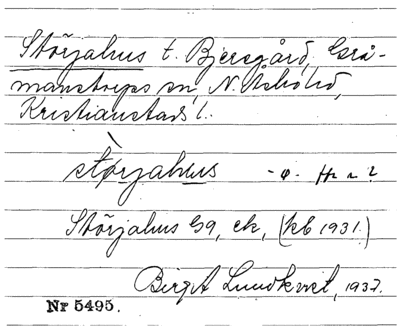 Störjahus t. Bjersgård, Grå-
manstorps sn, N. Åsbo hd,
Kristianstads l.
störjahus
Störjahus G9, ek, (kb 1931.)
Birgit Lundkvist, 1937.
Nr 5495.